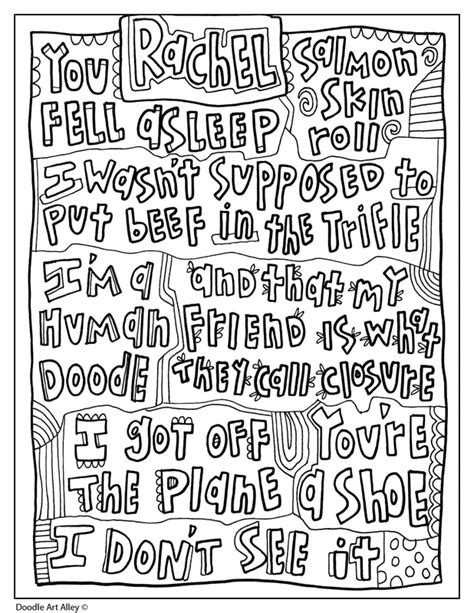 Rachel
You
FELL aSLEEP
Salmon
Skin
roll
I Wasn't Supposed to
Put Beef in the Trifle
I'm a
Human
Doode
and that my
Friend is what
they call closure
I got off
The Plane
You're
a Shoe
I Don't See it
Doodle Art Alley ©